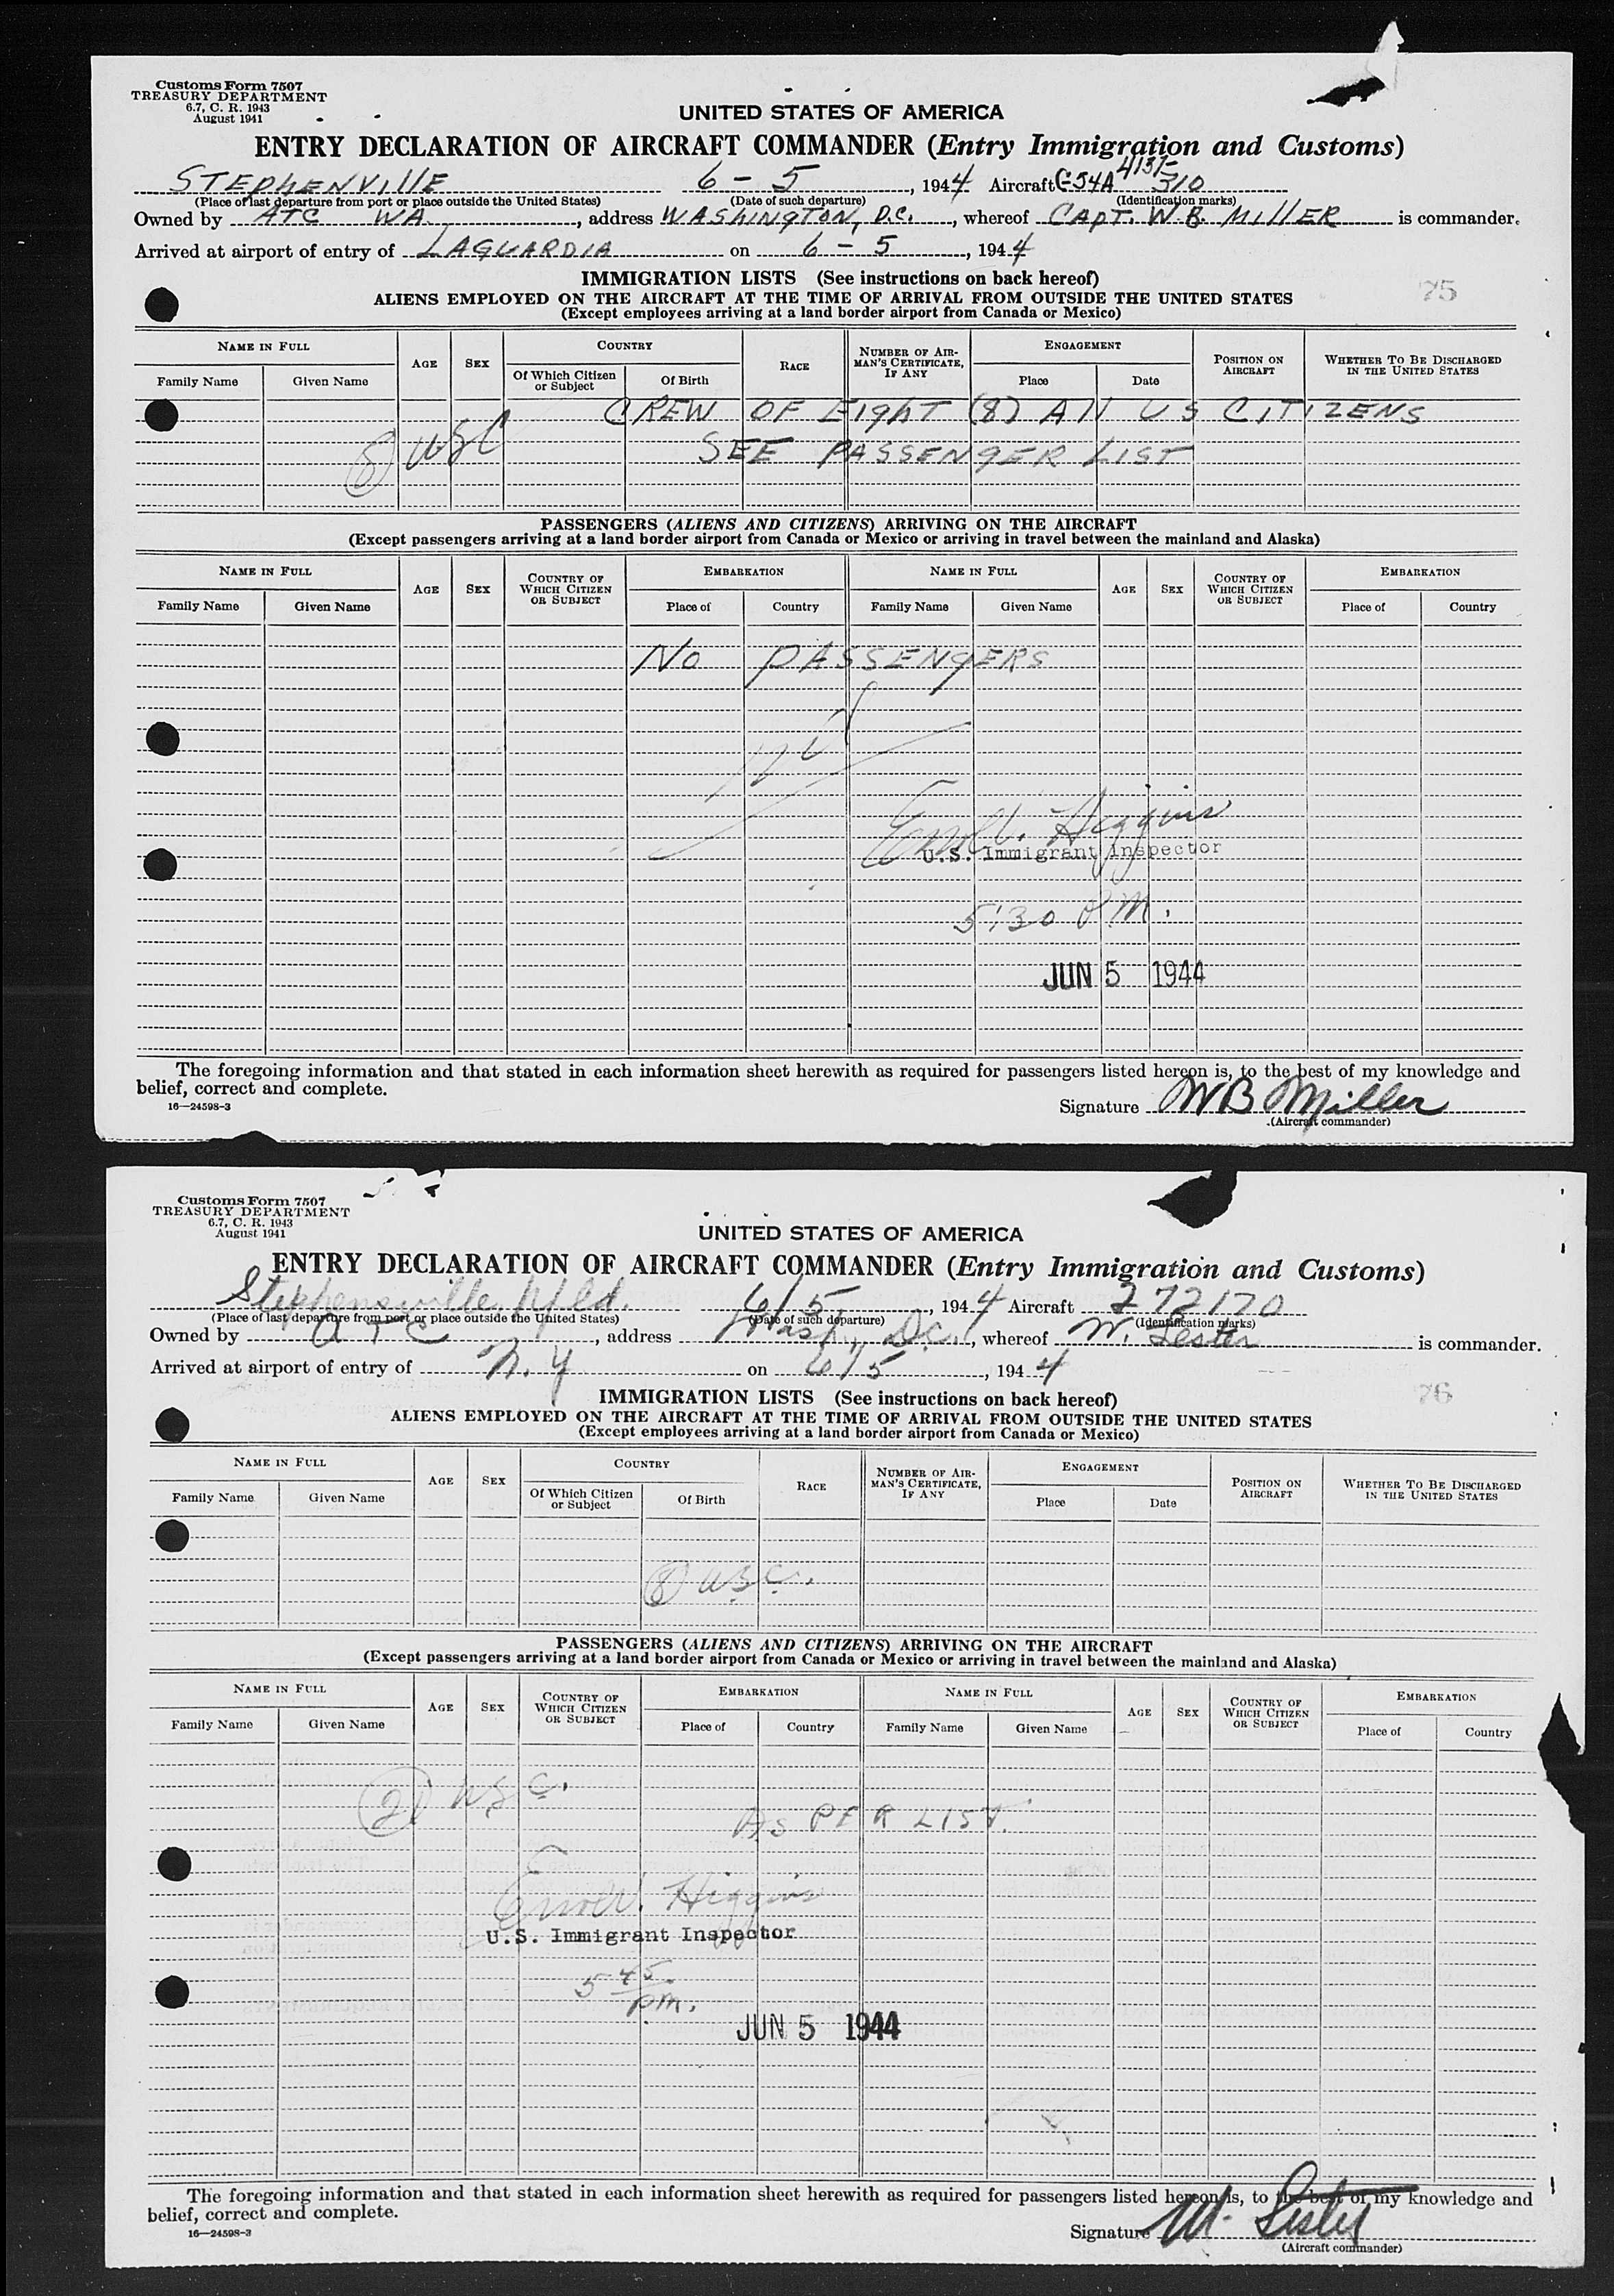 Customs Form 7507
TREASURY DEPARTMENT
6.7, C. R. 1943
August 1941
UNITED STATES OF AMERICA
ENTRY DECLARATION OF AIRCRAFT COMMANDER (Entry Immigration and Customs)
STEPHENVIllE 6 – 5, 1944 Aircraft C-54A 4137- 310
(Place of last departure from port or place outside the United States) (Date of such departure) (Identification marks)
Owned by ATC WA, address WASHINGTON, D.C., whereof CAPT. W. B. MIllER is commander.
Arrived at airport of entry of LAGUARDIA on 6 – 5, 1944
IMMIGRATION LISTS (See instructions on back hereof)
75
ALIENS EMPLOYED ON THE AIRCRAFT AT THE TIME OF ARRIVAL FROM OUTSIDE THE UNITED STATES
(Except employees arriving at a land border airport from Canada or Mexico)
NAME IN FULL AGE SEX COUNTRY RACE NUMBER OF AIRMAN'S CERTIFICATE, IF ANY ENGAGEMENT POSITION ON AIRCRAFT WHETHER TO BE DISCHARGED IN THE UNITED STATES
Family Name Given Name Of Which Citizen or Subject Of Birth Place Date
CREW OF EIghT (8) All US CITIZENS
8 USC SEE PASSENGER LIST
PASSENGERS (ALIENS AND CITIZENS) ARRIVING ON THE AIRCRAFT
(Except passengers arriving at a land border airport from Canada or Mexico or arriving in travel between the mainland and Alaska)
NAME IN FULL AGE SEX COUNTRY OF WHICH CITIZEN OR SUBJECT EMBARKATION NAME IN FULL AGE SEX COUNTRY OF WHICH CITIZEN OR SUBJECT EMBARKATION
Family Name Given Name Place of Country Family Name Given Name Place of Country
No PASSENgERS
nil
Higgins
U.S. Immigrant Inspector
5:30 P.M.
JUN 5 1944
The foregoing information and that stated in each information sheet herewith as required for passengers listed hereon is, to the best of my knowledge and
belief, correct and complete.
16—24598-3
Signature WB Miller
(Aircraft commander)
Customs Form 7507
TREASURY DEPARTMENT
6.7, C. R. 1943
August 1941
UNITED STATES OF AMERICA
ENTRY DECLARATION OF AIRCRAFT COMMANDER (Entry Immigration and Customs)
Stephensville, Nfld. 6/5, 1944 Aircraft 272170
(Place of last departure from port or place outside the United States) (Date of such departure) (Identification marks)
Owned by ATC, address Wash, D.C., whereof W. Lester is commander.
Arrived at airport of entry of N.Y on 6/5, 1944
IMMIGRATION LISTS (See instructions on back hereof)
76
ALIENS EMPLOYED ON THE AIRCRAFT AT THE TIME OF ARRIVAL FROM OUTSIDE THE UNITED STATES
(Except employees arriving at a land border airport from Canada or Mexico)
NAME IN FULL AGE SEX COUNTRY RACE NUMBER OF AIRMAN'S CERTIFICATE, IF ANY ENGAGEMENT POSITION ON AIRCRAFT WHETHER TO BE DISCHARGED IN THE UNITED STATES
Family Name Given Name Of Which Citizen or Subject Of Birth Place Date
8 USC.
PASSENGERS (ALIENS AND CITIZENS) ARRIVING ON THE AIRCRAFT
(Except passengers arriving at a land border airport from Canada or Mexico or arriving in travel between the mainland and Alaska)
NAME IN FULL AGE SEX COUNTRY OF WHICH CITIZEN OR SUBJECT EMBARKATION NAME IN FULL AGE SEX COUNTRY OF WHICH CITIZEN OR SUBJECT EMBARKATION
Family Name Given Name Place of Country Family Name Given Name Place of Country
21 USC.
AS PER LIST.
Higgins
U.S. Immigrant Inspector
5 45 pm.
JUN 5 1944
The foregoing information and that stated in each information sheet herewith as required for passengers listed hereon is, to the best of my knowledge and
belief, correct and complete.
16—24598-3
Signature W. Lester
(Aircraft commander)